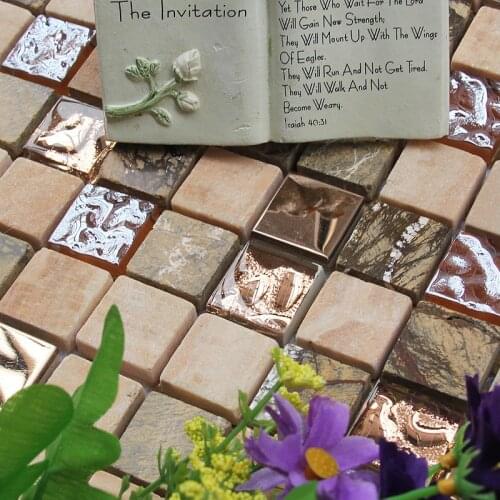 The Invitation
Yet Those Who Wait For The Lord
Will Gain New Strength;
They Will Mount Up With The Wings
Of Eagles.
They Will Run And Not Get Tired.
They Will Walk And Not
Become Weary.
Isaiah 40:31